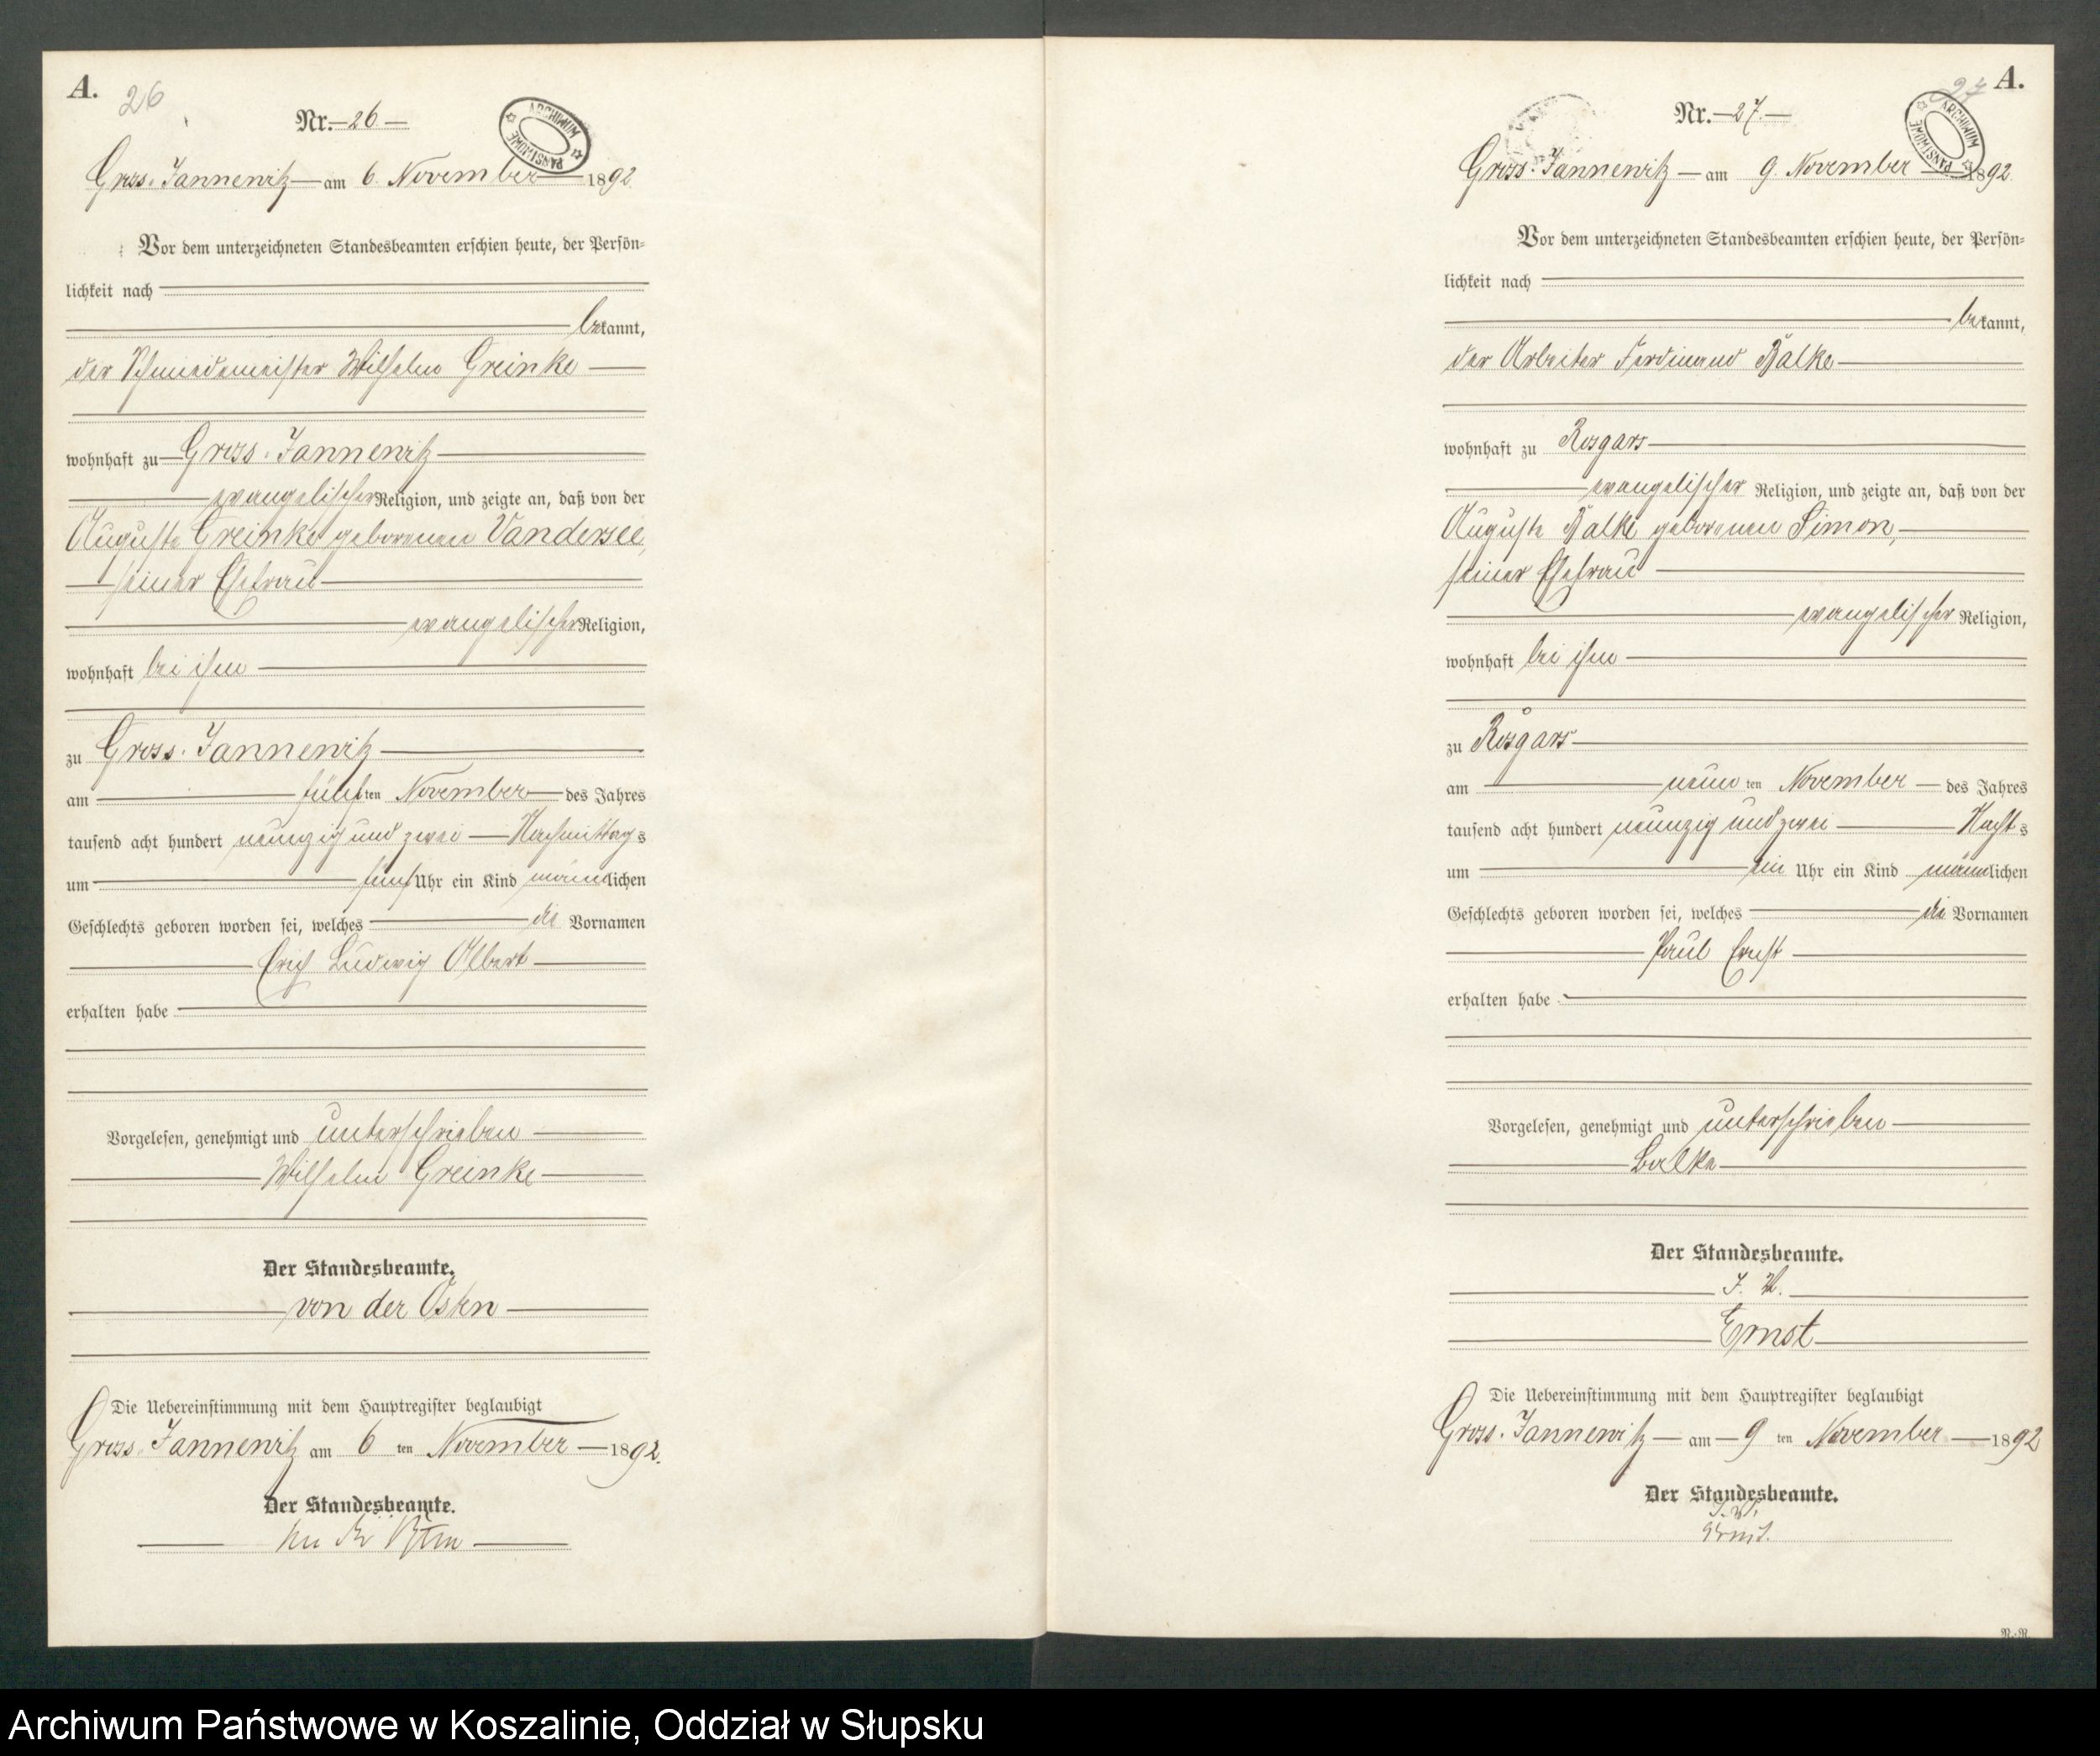 A.
26
Nr. 26
ARCHIWUM PAŃSTWOWE
Gross-Jannewitz am 6. November 1892
Vor dem unterzeichneten Standesbeamten erschien heute, der Persön-
lichkeit nach
bekannt,
der Schmiedemeister Wilhelm Greinke
wohnhaft zu Gross-Jannewitz
evangelischer Religion, und zeigte an, daß von der
Auguste Greinke geborenen Vandersee,
seiner Ehefrau
evangelischer Religion,
wohnhaft bei ihm
zu Gross-Jannewitz
am fünften November des Jahres
tausend acht hundert neunzig und zwei Nachmittags
um fünf Uhr ein Kind männlichen
Geschlechts geboren worden sei, welches die Vornamen
Erich Ludwig Albert
erhalten habe
Vorgelesen, genehmigt und unterschrieben
Wilhelm Greinke
Der Standesbeamte.
von der Osten
Die Uebereinstimmung mit dem Hauptregister beglaubigt
Gross-Jannewitz am 6 ten November 1892.
Der Standesbeamte.
von der Osten
A.
27
Nr. 27.
ARCHIWUM PAŃSTWOWE
Gross-Jannewitz am 9. November 1892
Vor dem unterzeichneten Standesbeamten erschien heute, der Persön-
lichkeit nach
bekannt,
der Arbeiter Ferdinand Balke
wohnhaft zu Rosgars
evangelischer Religion, und zeigte an, daß von der
Auguste Balke geborenen Simon,
seiner Ehefrau
evangelischer Religion,
wohnhaft bei ihm
zu Rosgars
am neunten November des Jahres
tausend acht hundert neunzig und zwei Nachts
um ein Uhr ein Kind männlichen
Geschlechts geboren worden sei, welches die Vornamen
Paul Ernst
erhalten habe
Vorgelesen, genehmigt und unterschrieben
Balke
Der Standesbeamte.
I. V.
Ernst
Die Uebereinstimmung mit dem Hauptregister beglaubigt
Gross-Jannewitz am 9 ten November 1892
Der Standesbeamte.
I. V.
Ernst.
Archiwum Państwowe w Koszalinie, Oddział w Słupsku